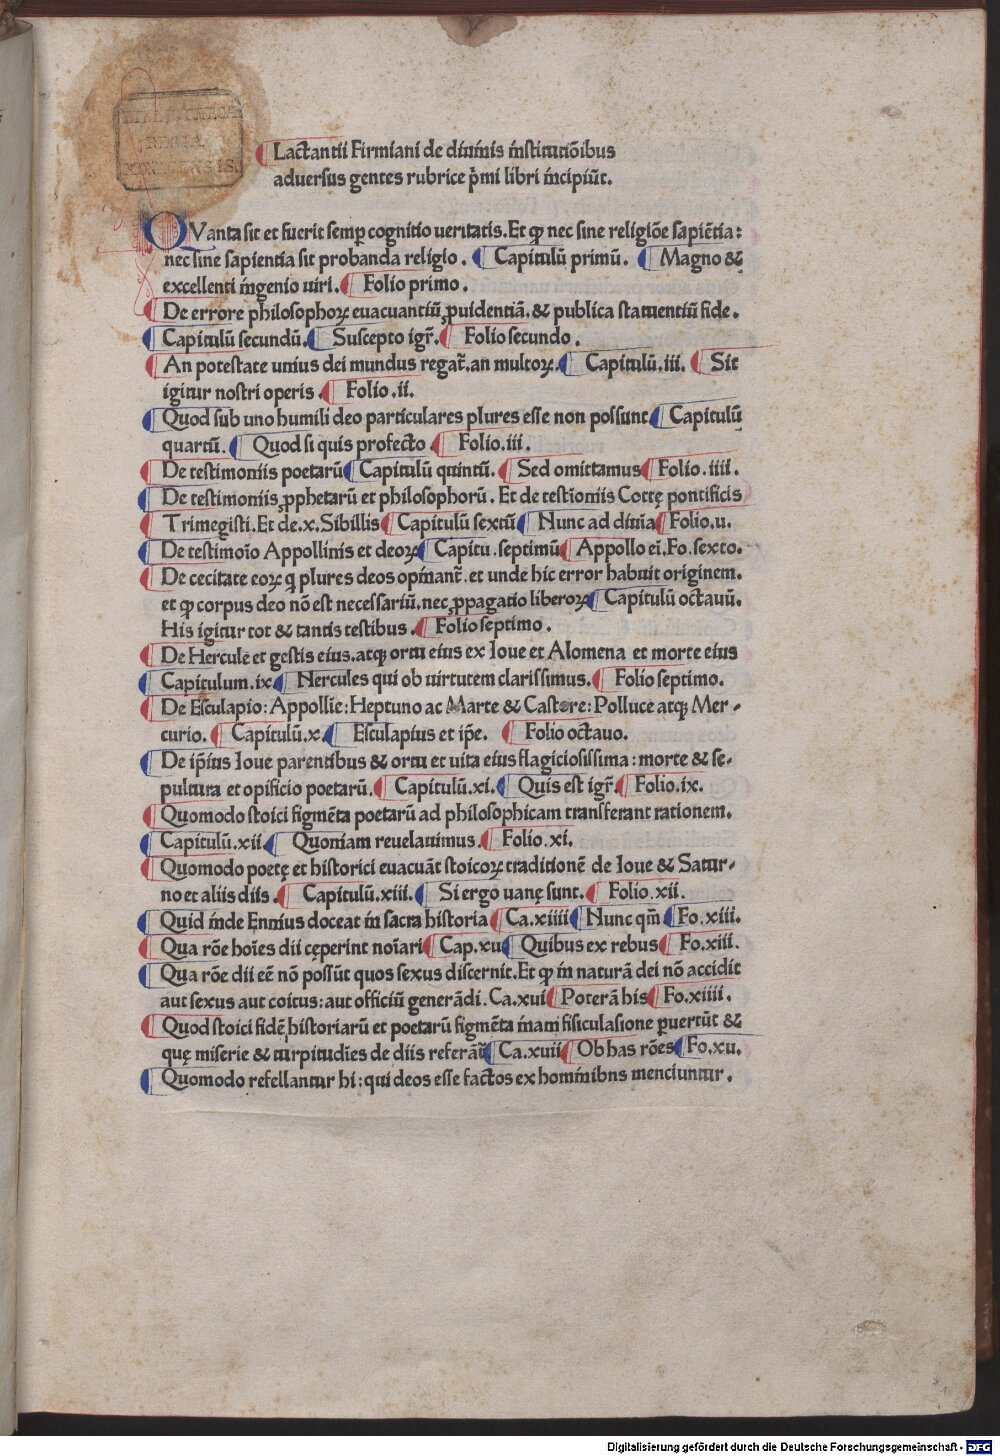 BIBLIOTHECA
REGIA
MONACENSIS.
Lactantii Firmiani de diuinis institutiõibus
aduersus gentes rubrice p̃mi libri incipiũt.
QVanta sit et fuerit semp̲ cognitio ueritatis. Et ꝙ nec sine religiõe sapiẽtia:
nec sine sapientia sit probanda religio. Capitulũ primũ. Magno &
excellenti ingenio uiri. Folio primo.
De errore philosophoꝝ euacuantiũ ꝓuidentiã. & publica statuentiũ fide.
Capitulũ secundũ. Suscepto igr̃. Folio secundo.
An potestate unius dei mundus regat̃. an multoꝝ. Capitulũ .iii. Sit
igitur nostri operis. Folio .ii.
Quod sub uno humili deo particulares plures esse non possunt Capitulũ
quartũ. Quod si quis profecto. Folio .iii.
De testimoniis poetarũ Capitulũ quintũ. Sed omittamus Folio .iiii.
De testimoniis ꝓphetarũ et philosophorũ. Et de testiõniis Cottę pontificis
Trimegisti. Et de .x. Sibillis Capitulũ sextũ Nunc ad diuĩa Folio .u.
De testimoĩo Appollinis et deoꝝ Capitu. septimũ Appollo ei. Fo. sexto.
De cecitate eoꝝ q̃ plures deos opinant̃. et unde hic error habuit originem.
et ꝙ corpus deo nõ est necessariũ. nec ꝓpagatio liberoꝝ Capitulũ octauũ.
His igitur tot & tantis testibus. Folio septimo.
De Hercule et gestis eius. atqꝫ ortu eius ex Ioue et Alomena et morte eius
Capitulum .ix. Hercules qui ob uirtutem clarissimus. Folio septimo.
De Esculapio: Appollĩe: Heptuno ac Marte & Castore: Polluce atqꝫ Mer-
curio. Capitulũ .x. Esculapius et ip̃e. Folio octauo.
De ip̃ius Ioue parentibus & ortu et uita eius flagiciosissima: morte & se-
pultura et opificio poetarũ. Capitulũ .xi. Quis est igr̃. Folio .ix.
Quomodo stoici figmẽta poetarũ ad philosophicam transferant rationem.
Capitulũ .xii. Quoniam reuelauimus. Folio .xi.
Quomodo poetę et historici euacuãt stoicoꝝ traditionẽ de Ioue & Satur-
no et aliis diis. Capitulũ .xiii. Si ergo uanę sunt. Folio .xii.
Quid inde Ennius doceat in sacra historia Ca. xiiii Nunc qm̃ Fo. xiii.
Qua rõe hoĩes dii cęperint noĩari Cap. xu Quibus ex rebus Fo. xiii.
Qua rõe dii eẽ nõ possũt quos sexus discernit. Et ꝙ in naturã dei nõ accidit
aut sexus aut coitus: aut officiũ generãdi. Ca. xui Poterã his Fo. xiiii.
Quod stoici fidẽ historiarũ et poetarũ figmẽta inani fisiculasione p̲uertũt &
quę miserie & turpitudĩes de diis referãt̃ Ca. xuii Ob has rões Fo. xu.
Quomodo refellantur hi: qui deos esse factos ex hominibns menciuntur.
Digitalisierung gefördert durch die Deutsche Forschungsgemeinschaft - DFG